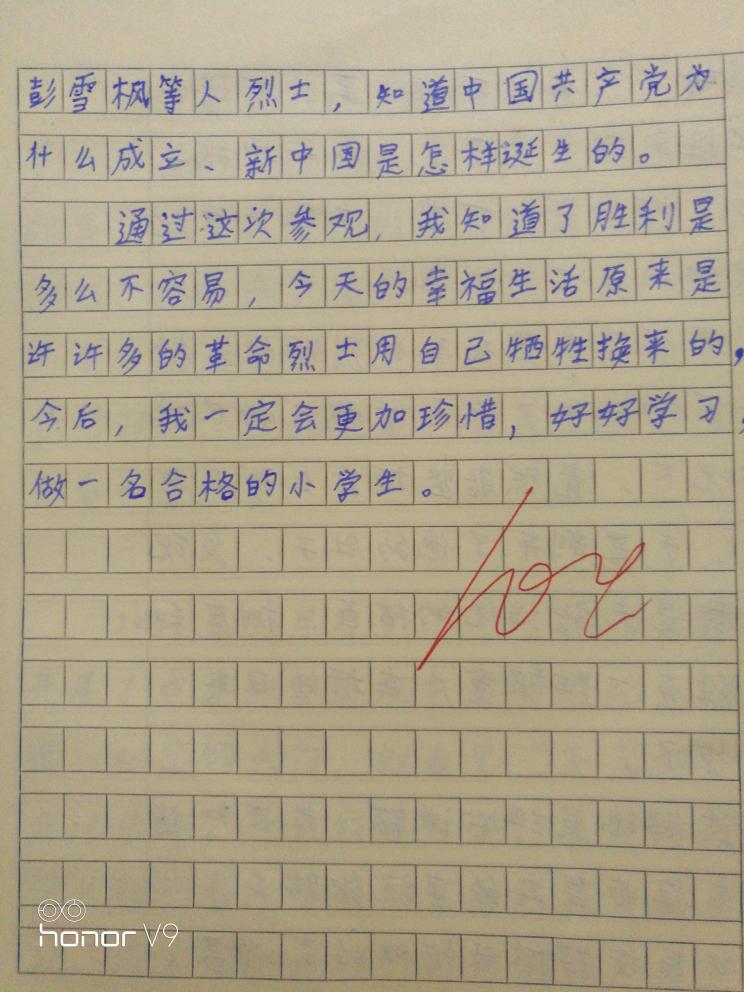 彭雪枫等人烈士，知道中国共产党为
什么成立、新中国是怎样诞生的。
通过这次参观，我知道了胜利是
多么不容易，今天的幸福生活原来是
许许多的革命烈士用自己牺牲换来的，
今后，我一定会更加珍惜，好好学习，
做一名合格的小学生。
honor V9